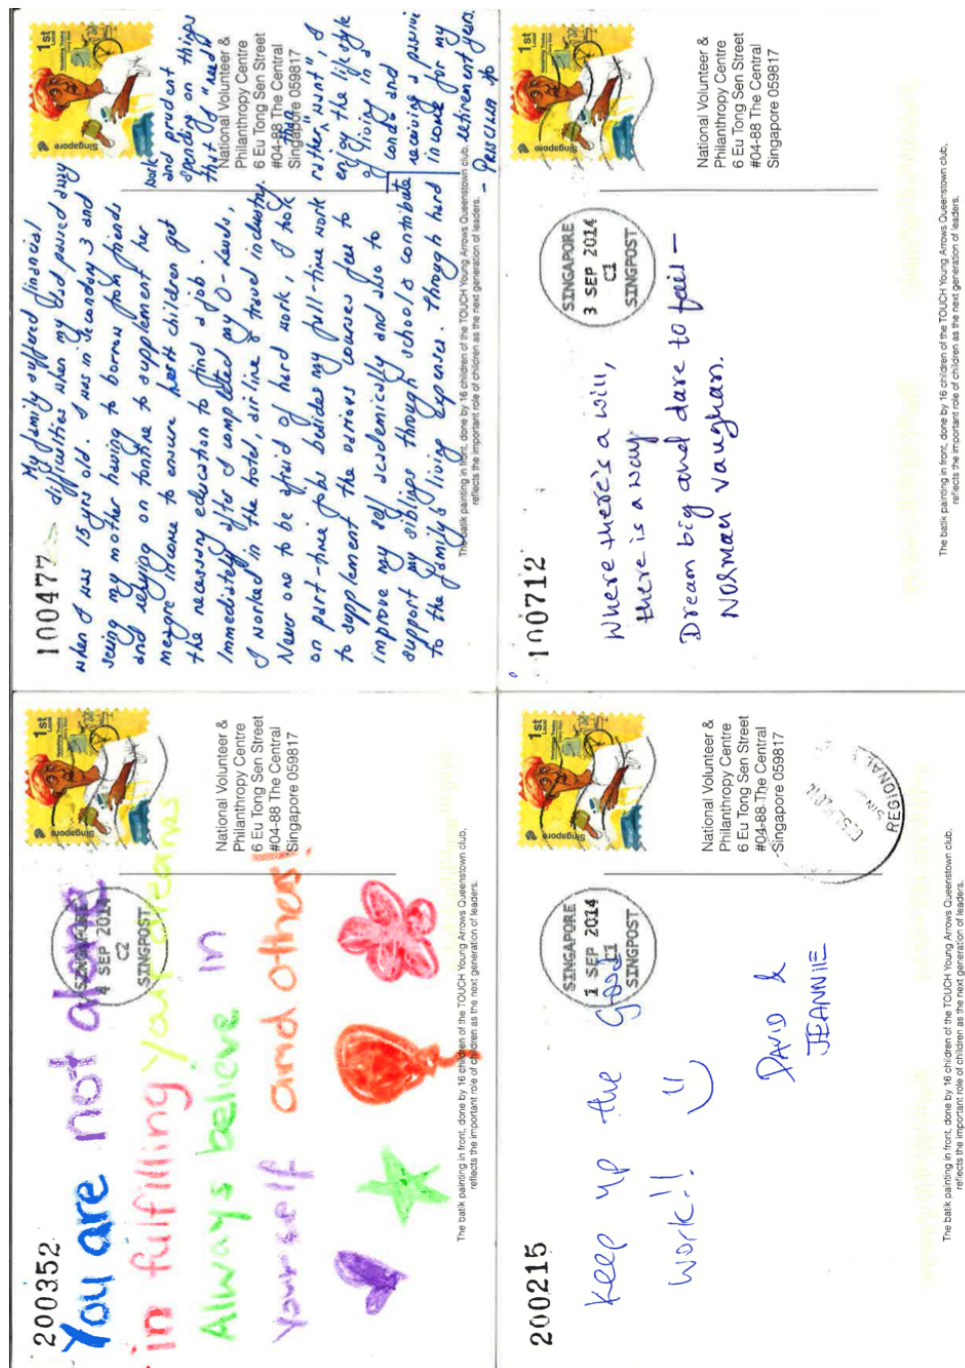 200352
You are not alone
in fulfilling your dreams
Always believe in
yourself and others!
Singapore
1st
Local
SINGAPORE
4 SEP 2014
C2
SINGPOST
National Volunteer &
Philanthropy Centre
6 Eu Tong Sen Street
#04-88 The Central
Singapore 059817
The batik painting in front, done by 16 children of the TOUCH Young Arrows Queenstown club,
reflects the important role of children as the next generation of leaders.
100477
My family suffered financial
difficulties when my dad passed away
when I was 15 yrs old. I was in Secondary 3 and
seeing my mother having to borrow from friends
and relying on tontine to supplement her
meagre income to ensure her children get
the necessary education to find a job.
Immediately after I completed my O-levels,
I worked in the hotel, airline & travel industry.
Never one to be afraid of hard work, I took
on part-time jobs besides my full-time work
to supplement the various courses fees to
improve my self academically and also to
support my siblings through school & contribute
to the family's living expenses. Through hard
work
and prudent
spending on things
that I "need"
rather than "want", I
enjoy the lifestyle
of living in a
condo and
receiving a passive
income for my
retirement years.
- PRISCILLA
Singapore
1st
Local
National Volunteer &
Philanthropy Centre
6 Eu Tong Sen Street
#04-88 The Central
Singapore 059817
The batik painting in front, done by 16 children of the TOUCH Young Arrows Queenstown club,
reflects the important role of children as the next generation of leaders.
200215
Keep up the good
work!!
DAVID &
JEANNIE
Singapore
1st
Local
SINGAPORE
1 SEP 2014
SINGPOST
National Volunteer &
Philanthropy Centre
6 Eu Tong Sen Street
#04-88 The Central
Singapore 059817
REGIONAL
The batik painting in front, done by 16 children of the TOUCH Young Arrows Queenstown club,
reflects the important role of children as the next generation of leaders.
100712
Where there's a will,
there is a way.
Dream big and dare to fail —
Norman Vaughan.
Singapore
1st
Local
SINGAPORE
3 SEP 2014
C1
SINGPOST
National Volunteer &
Philanthropy Centre
6 Eu Tong Sen Street
#04-88 The Central
Singapore 059817
The batik painting in front, done by 16 children of the TOUCH Young Arrows Queenstown club,
reflects the important role of children as the next generation of leaders.